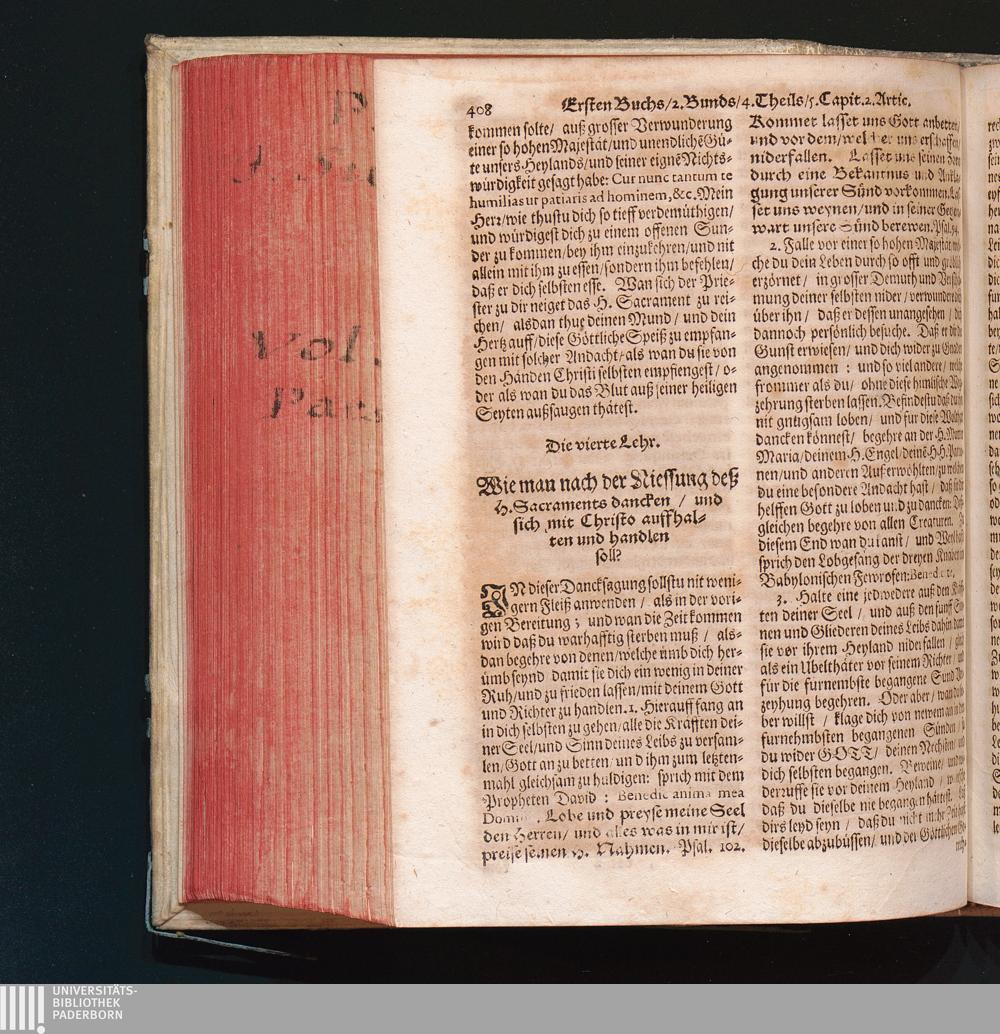 408
Ersten Buchs/2. Bunds/4. Theils/5. Capit.2. Artic.
kommen solte/ auß grosser Verwunderung
einer so hohen Majestät/und unendlichē Gü-
te unsers Heylands/und seiner eignē Nichts-
würdigkeit gesagt habe: Cur nunc tantum te
humilias ut patiaris ad hominem, &c. Mein
Herr/wie thustu dich so tieff verdemüthigen/
und würdigest dich zu einem offenen Sun-
der zu kommen/bey ihm einzukehren/und nit
allein mit ihm zu essen/sondern ihm befehlen/
daß er dich selbsten esse. Wan sich der Prie-
ster zu dir neiget das H. Sacrament zu rei-
chen/ alsdan thue deinen Mund/ und dein
Hertz auff/diese Göttliche Speiß zu empfan-
gen mit solcher Andacht/als wan du sie von
den Händen Christi selbsten empfiengest/ o-
der als wan du das Blut auß seiner heiligen
Seyten außsaugen thätest.
Die vierte Lehr.
Wie man nach der Niessung deß
H. Sacraments dancken/ und
sich mit Christo auffhal-
ten und handlen
soll?
IN dieser Dancksagung sollstu nit weni-
gern Fleiß anwenden/ als in der vori-
gen Bereitung; und wan die Zeit kommen
wird daß du warhafftig sterben muß/ als-
dan begehre von denen/welche umb dich her-
umb seynd damit sie dich ein wenig in deiner
Ruh/und zu frieden lassen/mit deinem Gott
und Richter zu handlen. 1. Hierauff fang an
in dich selbsten zu gehen/alle die Kräfften dei-
ner Seel/und Sinn deines Leibs zu versam-
len/Gott an zu betten/ und ihm zum letzten-
mahl gleichsam zu huldigen: sprich mit dem
Propheten David: Benedic anima mea
Domino. Lobe und preyse meine Seel
den Herren/ und alles was in mir ist/
preise seinen H. Nahmen. Psal. 102.
Kommet lasset uns Gott anbetten/
und vor dem/welcher uns erschaffen/
niderfallen. Lasset uns seinen Zorn
durch eine Bekantnus und Ankla-
gung unserer Sünd vorkommen. Las-
set uns weynen/und in seiner Gegen-
wart unsere Sünd berewen. Psal. 94.
2. Falle vor einer so hohen Majestät wel-
che du dein Leben durch so offt und gröblich
erzörnet/ in grosser Demuth und Verschä-
mung deiner selbsten nider/ verwundere dich
über ihn/ daß er dessen unangesehen/ dich
dannoch persönlich besuche. Daß er dir die
Gunst erwiesen/ und dich wider zu Gnaden
angenommen: und so viel andere/ welche
frommer als du/ ohne diese himlische Weg-
zehrung sterben lassen. Befindestu daß du ihn
nit gnugsam loben/ und für diese Wolthat
dancken könnest/ begehre an der H. Mutter
Maria/deinem H. Engel/deinē H H. Patro-
nen/und anderen Außerwöhlten/zu welchen
du eine besondere Andacht hast/ daß sie dir
helffen Gott zu loben und zu dancken: Deß-
gleichen begehre von allen Creaturen. Zu
diesem End wan du kanst/ und Weil hast
sprich den Lobgesang der dreyen Knaben im
Babylonischen Fewrofen: Benedicite.
3. Halte eine jedwedere auß den Kräff-
ten deiner Seel/ und auß den fünff Sin-
nen und Gliederen deines Leibs dahin damit
sie vor ihrem Heyland niderfallen/ gleich
als ein Ubelthäter vor seinem Richter/ und
für die fürnembste begangene Sünd Ver-
zeyhung begehren. Oder aber/ wan du lie-
ber willst/ klage dich von newem an in den
furnehmbsten begangenen Sünden/ so
du wider GOTT/ deinen Nechsten/ und
dich selbsten begangen. Beweine/ und wi-
derruffe sie vor deinem Heyland/ wolte
daß du dieselbe nie begangen hättest. Laß
dirs leyd seyn/ daß du nicht mehr Zeit hast
dieselbe abzubüssen/ und der Göttlichen Ge-
rech-
Vol.
Pars
UNIVERSITÄTS-
BIBLIOTHEK
PADERBORN